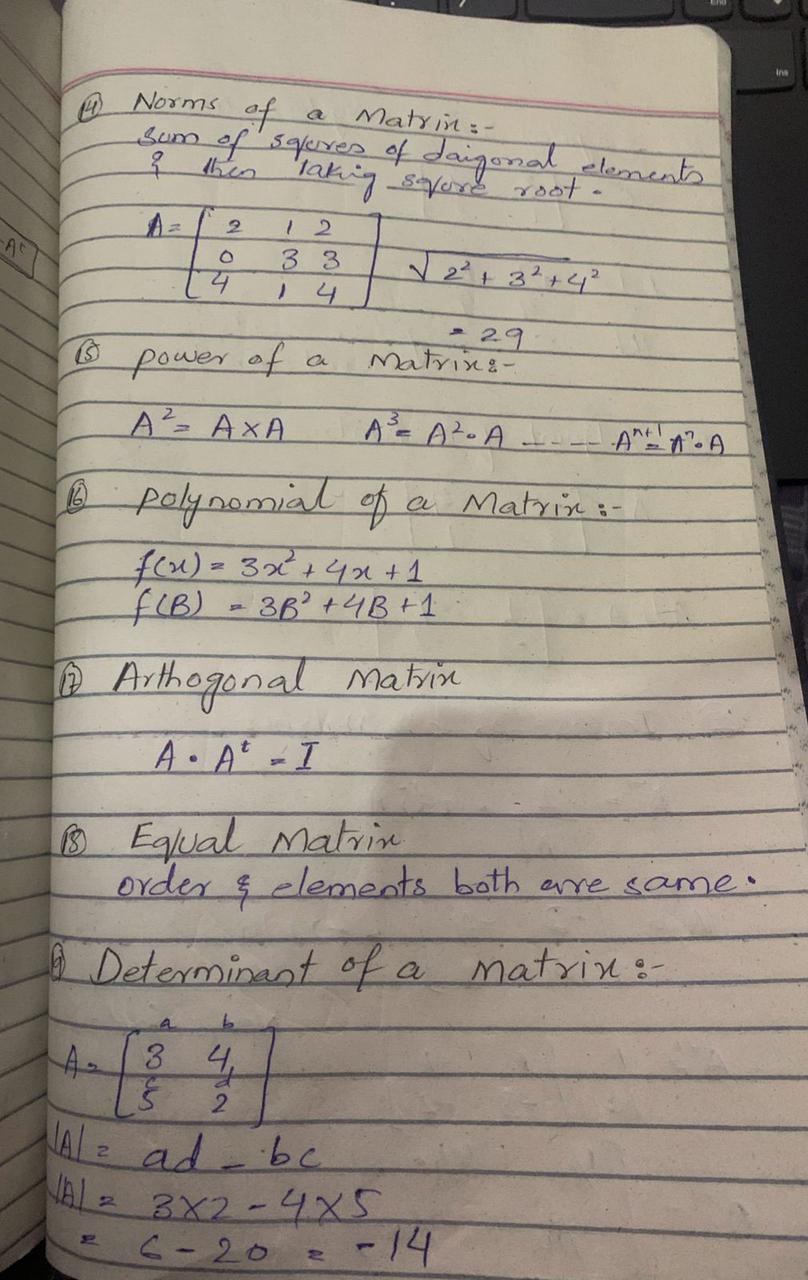 (14) Norms of a Matrix:-
sum of squres of daigonal elements
& then taking squre root.
A = [ 2 1 2
0 3 3
4 1 4 ] √2² + 3² + 4²
= 29
(15) power of a Matrix:-
A² = A×A A³ = A²·A ------ Aⁿ⁺¹ = Aⁿ·A
(16) polynomial of a Matrix:-
f(x) = 3x² + 4x + 1
f(B) = 3B² + 4B + 1
(17) Arthogonal Matrix
A · Aᵗ = I
(18) Equal Matrix
order & elements both are same.
(19) Determinant of a matrix:-
a b
A = [ 3 4
c d
5 2 ]
|A| = ad - bc
|A| = 3×2 - 4×5
= 6 - 20 = -14
End
Ins